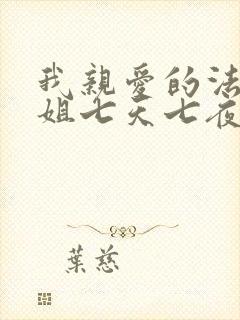 我親愛的法
姐七天七夜
葉慈